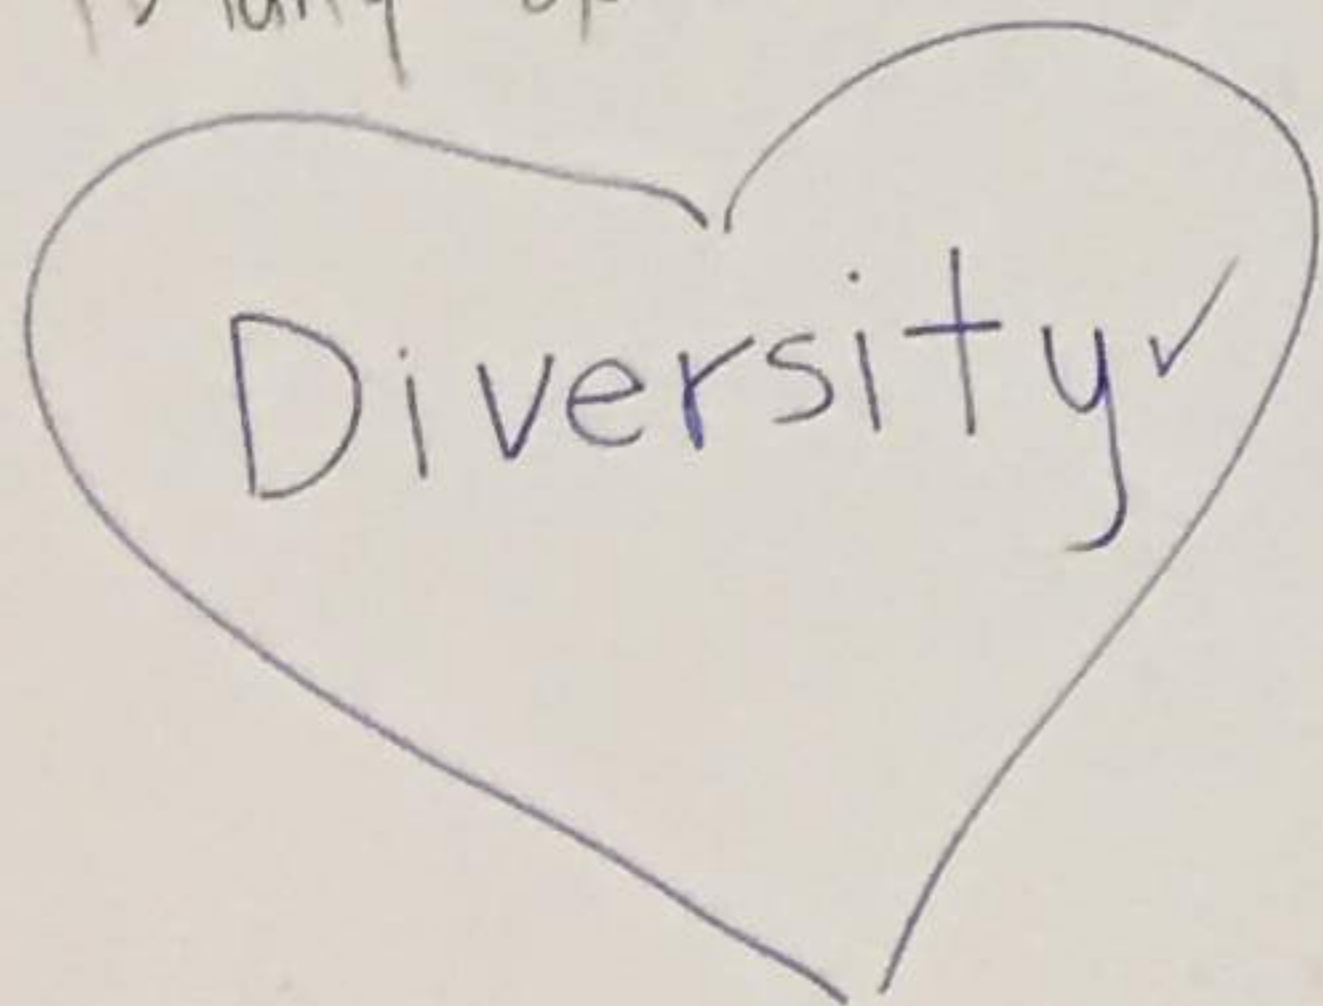 Diversity✓